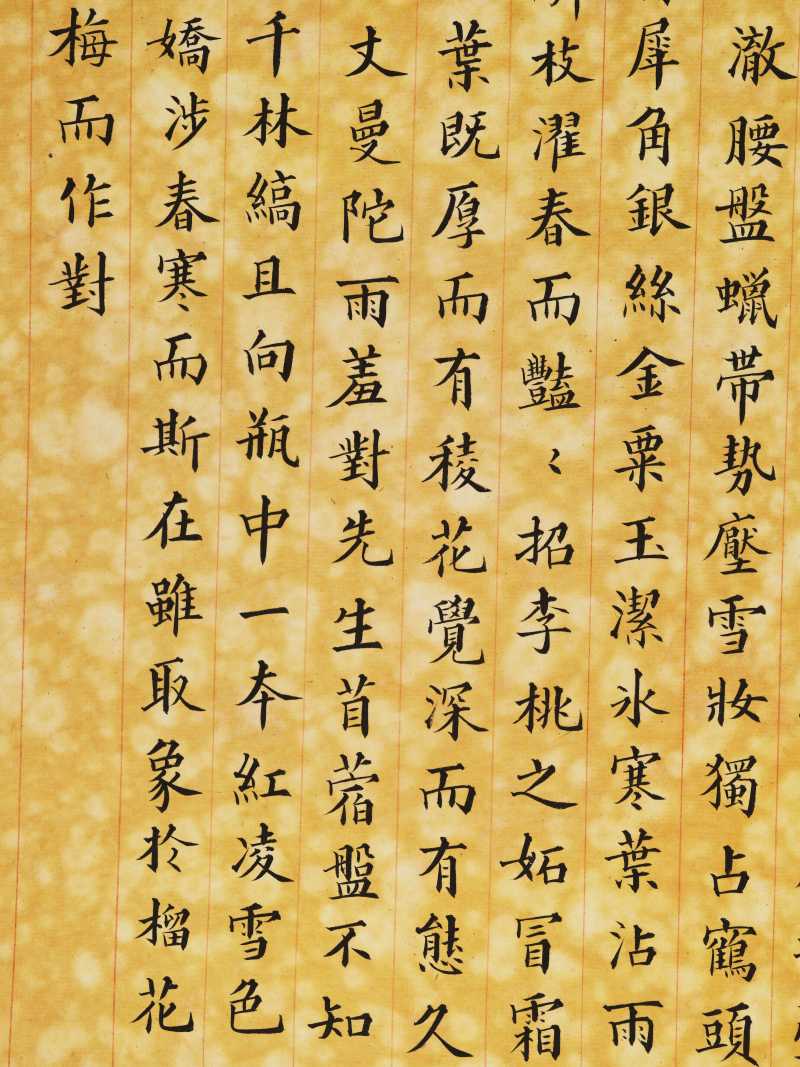 澈腰盤蠟帶勢壓雪妝獨占鶴頭
犀角銀絲金粟玉潔冰寒葉沾雨
枝濯春而豔〻招李桃之妬冒霜
葉既厚而有稜花覺深而有態久
丈曼陀雨羞對先生苜蓿盤不知
千林縞且向瓶中一本紅凌雪色
嬌涉春寒而斯在雖取象於榴花
梅而作對